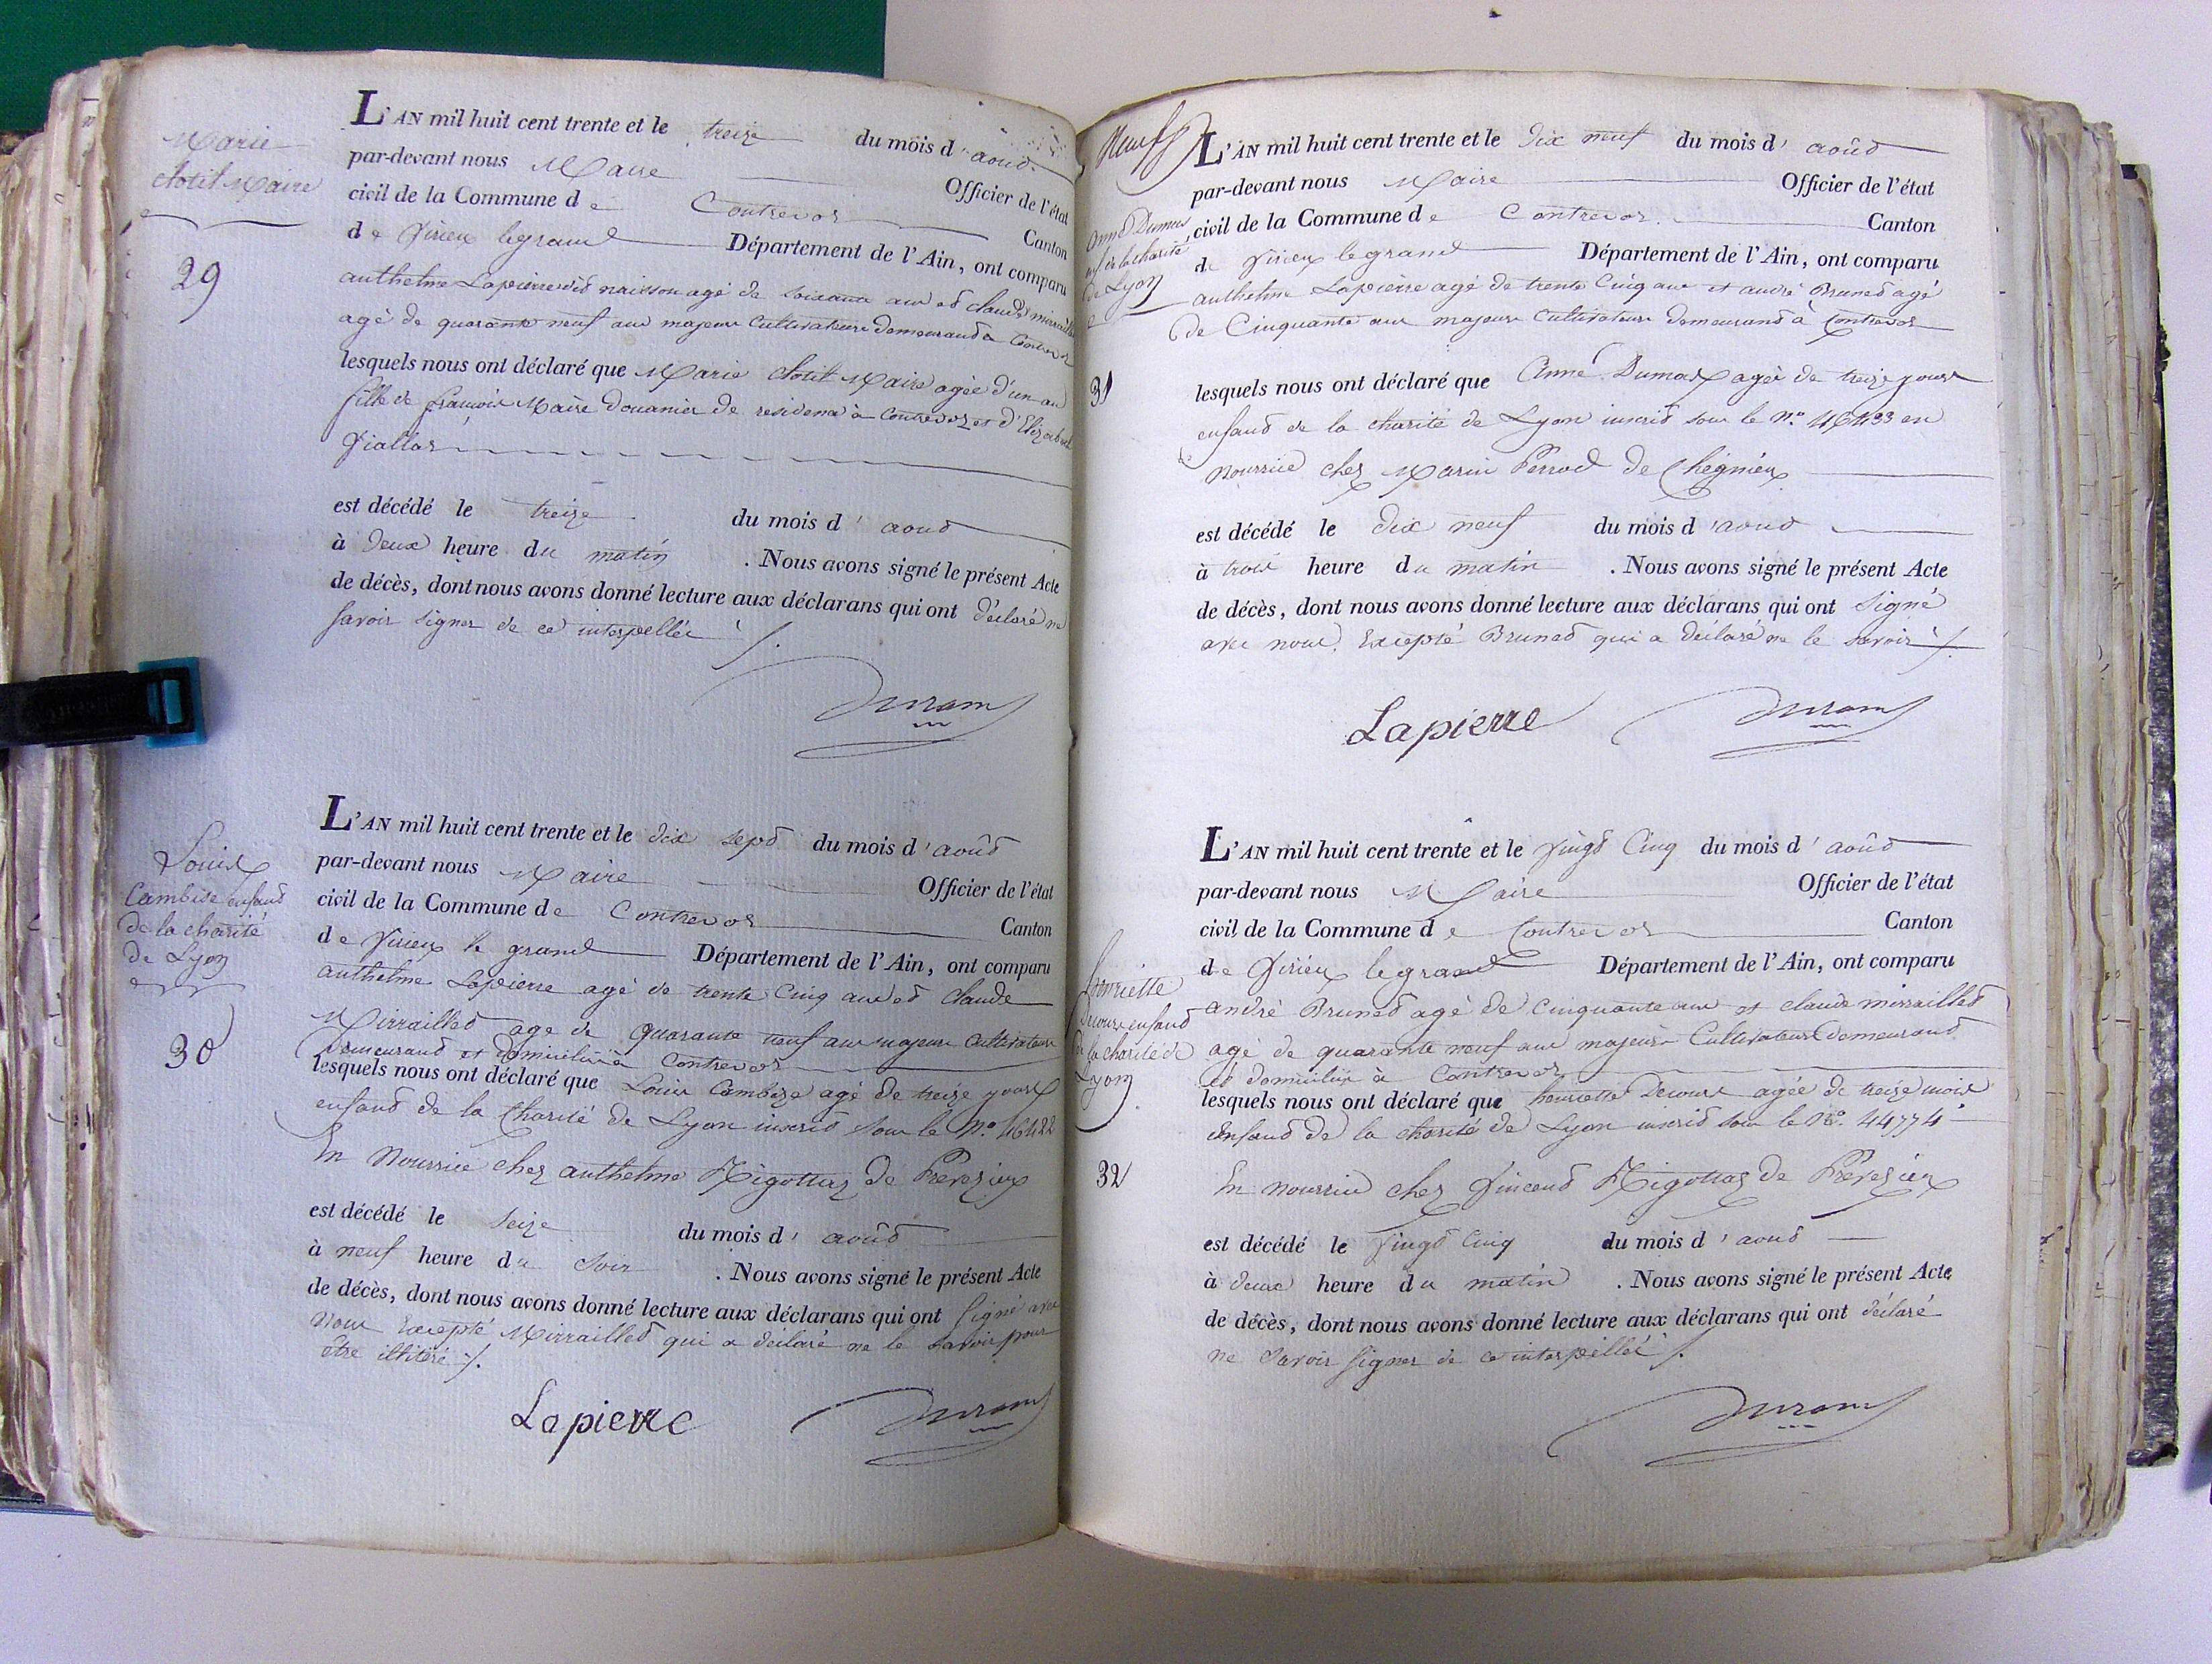 Marie
clotil Maire
29
L'AN mil huit cent trente et le treize du mois d'aoud
par-devant nous Maire Officier de l'état
civil de la Commune de Contrevoz Canton
de Virieu legrand Département de l'Ain, ont comparu
anthelme Lapierre did naisson agé de soixante ans ed claude mirrailled
agé de quarante neuf ans majeurs Cultivateurs demeurand a Contrevoz
lesquels nous ont déclaré que Marie clotil Maire agée d'un an
fille de françois Maire douanier de residence à Contrevoz et d'Elizabeth
Viallas
est décédé le treize du mois d'aoud
à deux heure du matin . Nous avons signé le présent Acte
de décès, dont nous avons donné lecture aux déclarans qui ont déclaré ne
savoir signer de ce interpellés
Duram
Louis
Cambise enfand
de la charité
de Lyon
30
L'AN mil huit cent trente et le dix sepd du mois d'aoûd
par-devant nous Maire Officier de l'état
civil de la Commune de Contrevoz Canton
de Virieu le grand Département de l'Ain, ont comparu
anthelme Lapierre agé de trente Cinq ans ed claude
Mirrailled age de quarante neuf ans majeurs Cultivateurs
demeurand et domiciliés à Contrevoz
lesquels nous ont déclaré que Louis Cambize agé de treize jours
enfand de la Charité de Lyon inscrid sous le No. 46422
En Nourrice chez anthelme Rigottaz de Prevezieu
est décédé le seize du mois d'aoûd
à neuf heure du soir . Nous avons signé le présent Acte
de décès, dont nous avons donné lecture aux déclarans qui ont signé avec
nous Excepté Mirrailled qui a declaré ne le savoir pour
être illitéré
Lapierre Duram
Neuf
Anne Dumas
enf de la charité
de Lyon
31
L'AN mil huit cent trente et le dix neuf du mois d'aoûd
par-devant nous Maire Officier de l'état
civil de la Commune de Contrevoz Canton
de Virieu le grand Département de l'Ain, ont comparu
anthelme Lapierre agé de trente Cinq ans et andré Bruned agé
de Cinquante ans majeurs Cultivateurs demeurand à Contrevoz
lesquels nous ont déclaré que Anne Dumas agée de treize jours
enfand de la charité de Lyon inscrid sous le No. 46433 en
Nourrice chez Marin Perrod de Chegnieu
est décédé le dix neuf du mois d'aoud
à trois heure du matin . Nous avons signé le présent Acte
de décès, dont nous avons donné lecture aux déclarans qui ont signé
avec nous Excepté Bruned qui a déclaré ne le savoir
Lapierre Duram
henriette
Decours enfand
de la charité de
Lyon
32
L'AN mil huit cent trente et le vingd Cinq du mois d'aoûd
par-devant nous Maire Officier de l'état
civil de la Commune de Contrevoz Canton
de Virieu legrand Département de l'Ain, ont comparu
andré Bruned agé de Cinquante ans et claude mirrailled
agé de quarante neuf ans majeurs Cultivateurs demeurand
ed domiciliés à Contrevoz
lesquels nous ont déclaré que henriette Decours agée de treize mois
Enfand de la charité de Lyon inscrid sous le No. 44774
En nourrice chez Vincend Rigottaz de Prevezieu
est décédé le vingd Cinq du mois d'aoud
à deux heure du matin . Nous avons signé le présent Acte
de décès, dont nous avons donné lecture aux déclarans qui ont déclaré
ne savoir signer de ce interpellés
Duram